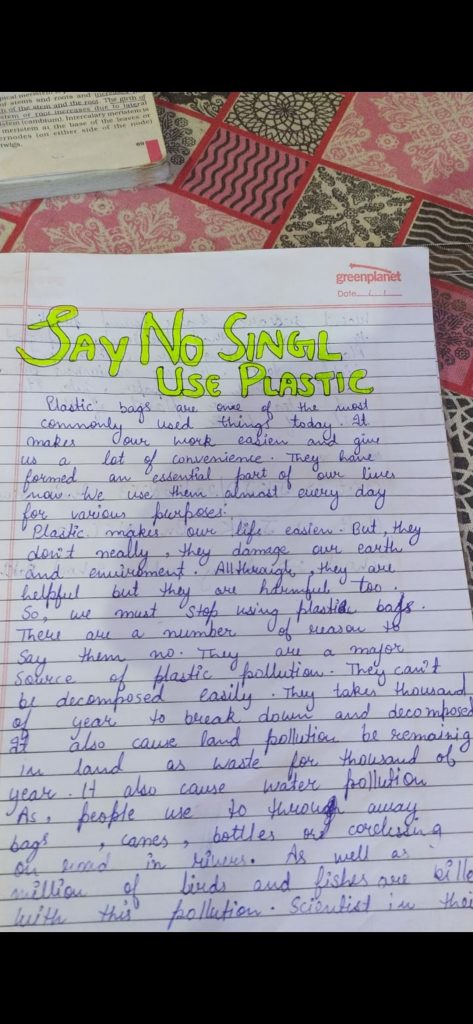 of stems and roots and
h of the stem and the root. The girth of
stem or root increases due to lateral
istem (cambium). Intercalary meristem is
meristem at the base of the leaves or
ernodes (on either side of the node)
twigs.
69
greenplanet
Date
SAY NO SINGL
USE PLASTIC
Plastic bags are one of the most
commonly used things today. It
makes our work easien and give
us a lot of convenience. They have
formed an essential part of our lives
now. We use them almost every day
for various purposes:
Plaitic makes our life easien. But, they
don't neally, they damage our earth
and enviroment. Allthraigh, they are
helpful but they are harmful too.
So, we must stop using plastic bags.
There are a number of reason to
Say them no. They are a major
Source of plastic pollution. They can't
be decomposed easily. They takes thousand
of year to break down and decomposed
It also cause land pollution be remainig
in land as waste for thousand of
year. It also cause water pollution
As, people use to through away
bags , canes, bottles
on road in rivers. As well as
million of birds and fishes are kille
with this pollution. Scientist in thei